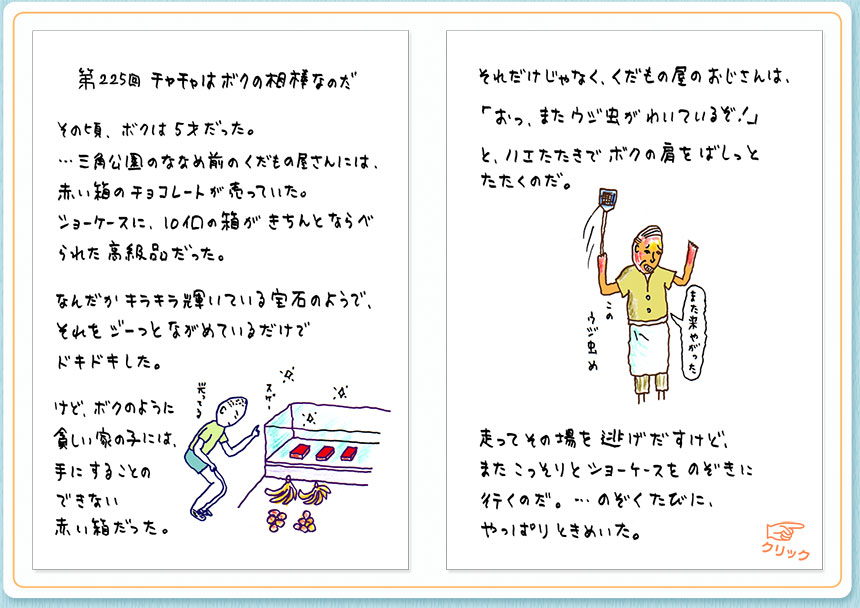 第225回 チャチャはボクの相棒なのだ
その頃、ボクは5才だった。
…三角公園のななめ前のくだもの屋さんには、
赤い箱のチョコレートが売っていた。
ショーケースに、10個の箱がきちんとならべ
られた高級品だった。
なんだかキラキラ輝いている宝石のようで、
それをジーっとながめているだけで
ドキドキした。
けど、ボクのように
貧しい家の子には、
手にすることの
できない
赤い箱だった。
光ってる
スゲー
それだけじゃなく、くだもの屋のおじさんは、
「おっ、またウジ虫がわいているぞ!」
と、ハエたたきでボクの肩をばしっと
たたくのだ。
この
ウジ虫め
また来やがった
走ってその場を逃げだすけど、
またこっそりとショーケースをのぞきに
行くのだ。…のぞくたびに、
やっぱりときめいた。
クリック